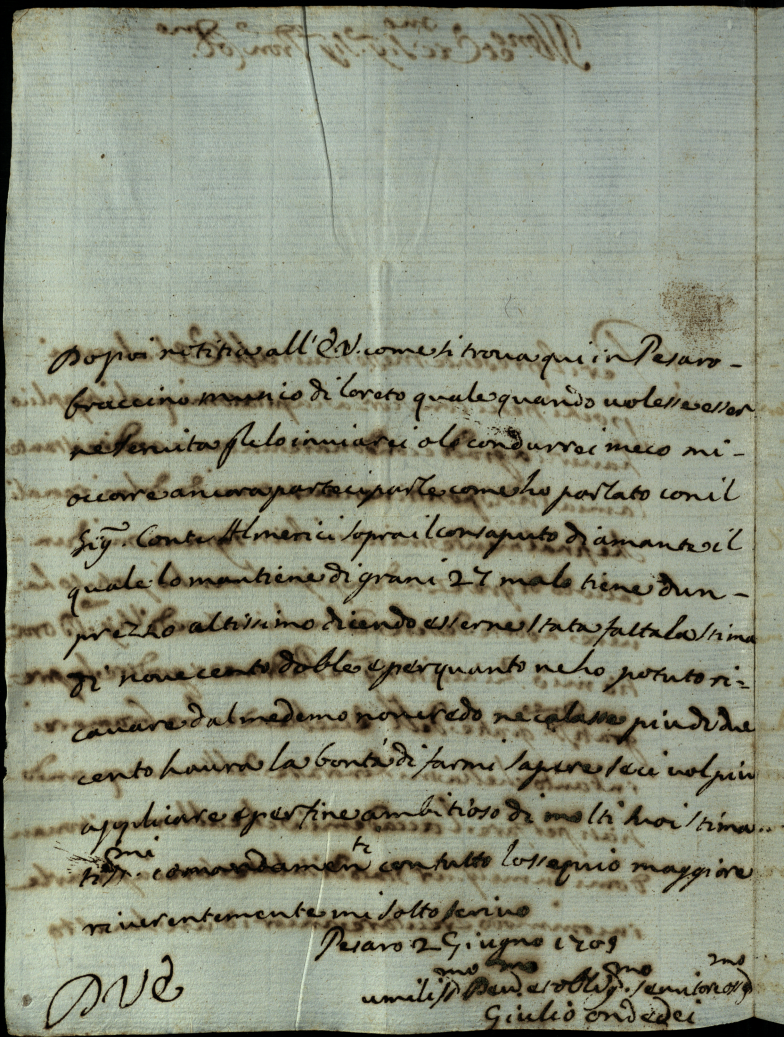 Dopoi notitia all'E V. come si trova qui in Pesaro -
braccino musico di loreto quale quando volesse esser
ne servita glielo inviarei o lo condurrei meco mi -
occorre ancora parteciparle come ho parlato con il
Sig.r Conte Almerici sopra il consaputo diamante il
quale lo mantiene di grani 27 ma lo tiene d'un -
prezzo altissimo dicendo esserne stata fatta la stima
di novecento doble e per quanto ne ho potuto ri=
cavare dal medemo non credo ne calasse piu di due
cento haura la bontà di farmi sapere se ci vol piu
applicare e per fine ambitioso di molti suoi stima..
tiss.mi comandamenti con tutto l'ossequio maggiore
riverentemente mi sottoscrivo
Pesaro 2 Giugno 1709
D V E
umiliss.mo Dev.mo et obblig.mo servitor oss.mo
Giulio ondedei